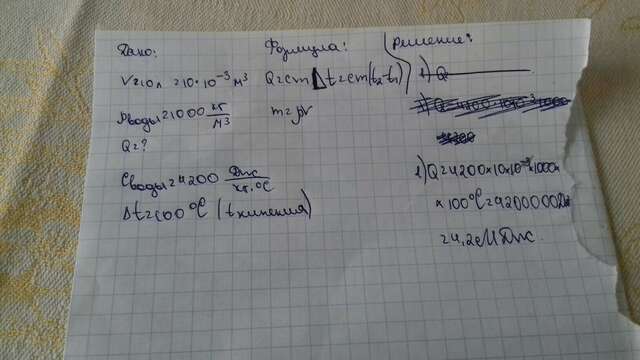 Дано:
V=10л =10·10⁻³ м³
ρводы=1000 кг/м³
Q=?
Cводы=4200 Дж/кг·°C
Δt=100 °C (t кипения)
Формула:
Q=cmΔt=cm(t₂-t₁)
m=ρV
Решение:
1) Q
1) Q=4200×10×10⁻³×1000×
×100°C=4200000Дж
=4,2МДж